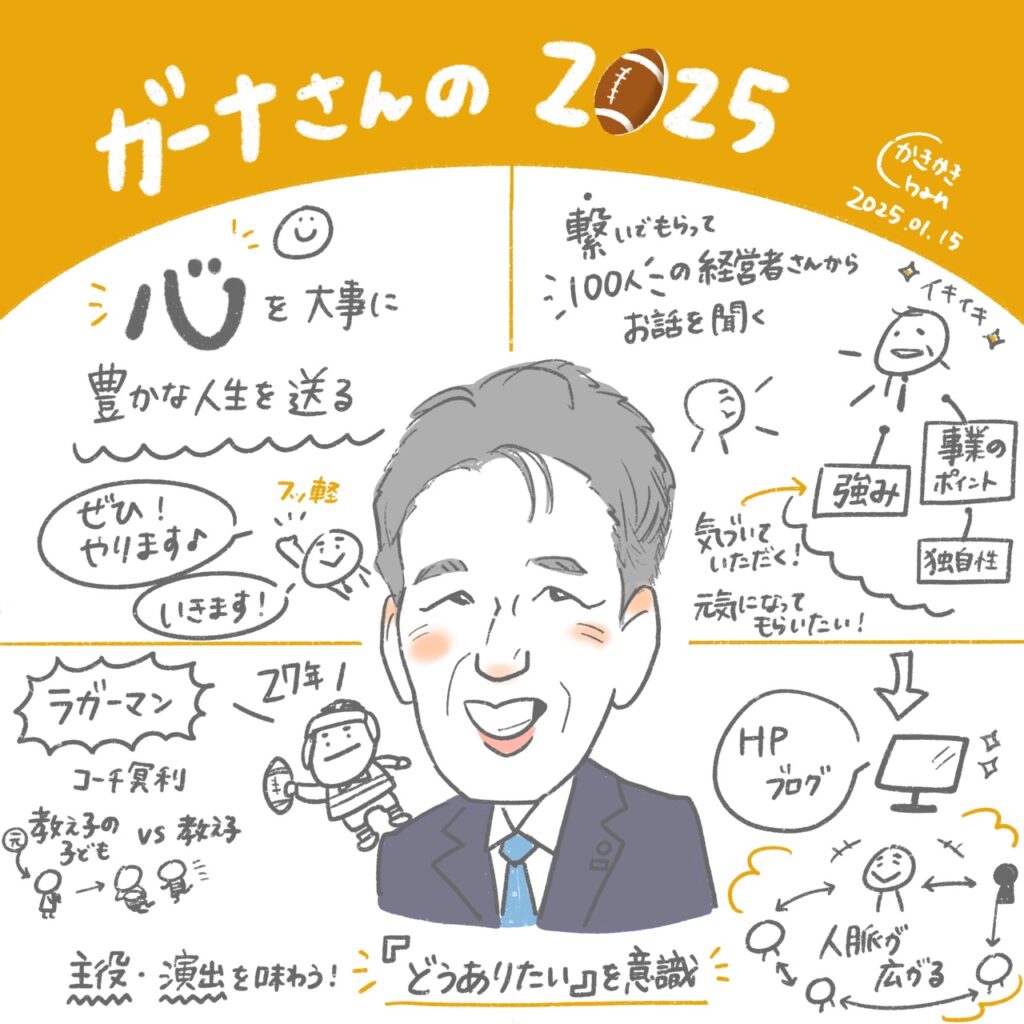 ガーナさんの 2025
かきかき
hän
2025.01.15
心を大事に
豊かな人生を送る
ぜひ!
やります♪
フッ軽
いきます!
繋いでもらって
100人の経営者さんから
お話を聞く
イキイキ
強み
事業の
ポイント
独自性
気づいて
いただく!
元気になって
もらいたい!
ラガーマン
27年!
コーチ冥利
元
教え子の
子ども
vs 教え子
主役・演出を味わう!
『どうありたい』を意識
HP
ブログ
人脈が
広がる